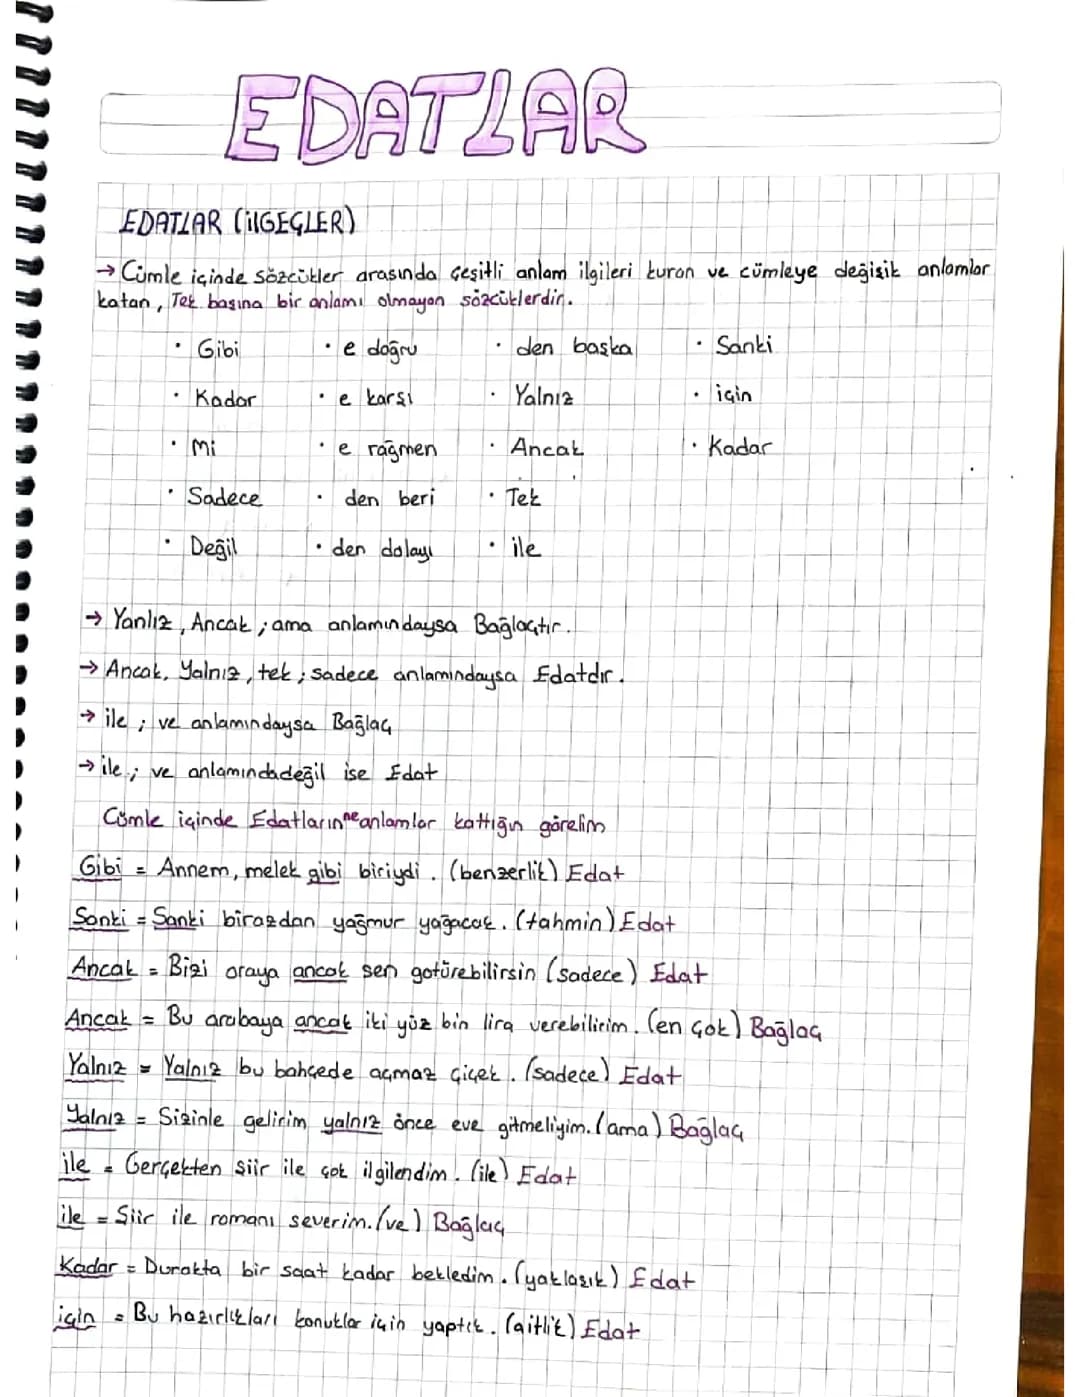 EDATLAR
EDATLAR (İLGEÇLER)
→ Cümle içinde sözcükler arasında çeşitli anlam ilgileri kuran ve cümleye değişik anlamlar
katan, Tek başına bir anlamı olmayan sözcüklerdir.
• Gibi • e doğru • den başka • Sanki
• Kadar • e karşı • Yalnız • için
• Mi • e rağmen • Ancak • Kadar
• Sadece • den beri • Tek
• Değil • den dolayı • ile
→ Yanlız, Ancak; ama anlamındaysa Bağlaçtır.
→ Ancak, Yalnız, tek; sadece anlamındaysa Edatdır.
→ ile; ve anlamındaysa Bağlaç
→ ile; ve anlamındadeğil ise Edat
Cümle içinde Edatların ne anlamlar kattığın görelim
Gibi = Annem, melek gibi biriydi. (benzerlik) Edat
Sanki = Sanki birazdan yağmur yağacak. (tahmin) Edat
Ancak = Bizi oraya ancak sen götürebilirsin (sadece) Edat
Ancak = Bu arabaya ancak iki yüz bin lira verebilirim. (en çok) Bağlaç
Yalnız = Yalnız bu bahçede açmaz çiçek. (sadece) Edat
Yalnız = Sizinle gelirim yalnız önce eve gitmeliyim. (ama) Bağlaç
ile = Gerçekten şiir ile çok ilgilendim. (ile) Edat
ile = Şiir ile romanı severim. (ve) Bağlaç
Kadar = Durakta bir saat kadar bekledim. (yaklaşık) Edat
için = Bu hazırlıkları konuklar için yaptık. (aitlik) Edat